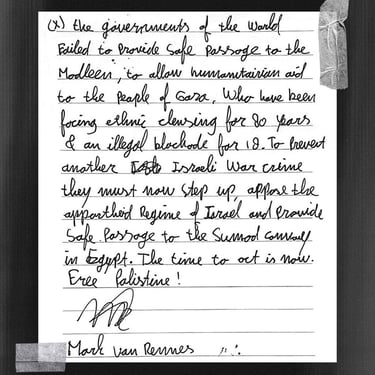 (x) the governments of the World
Failed to Provide Safe Passage to the
Madleen, to allow humanitairian aid
to the People of Gaza, Who have been
facing ethnic clensing for 80 years
& an illegal blockade for 18. To Prevent
another Israeli War crime
they must now step up, appose the
appartheid Regime of Israel and Provide
Safe Passage to the Sumod convoy
in Egypt. The time to act is now.
Free Palistine!
Mark van Rennes